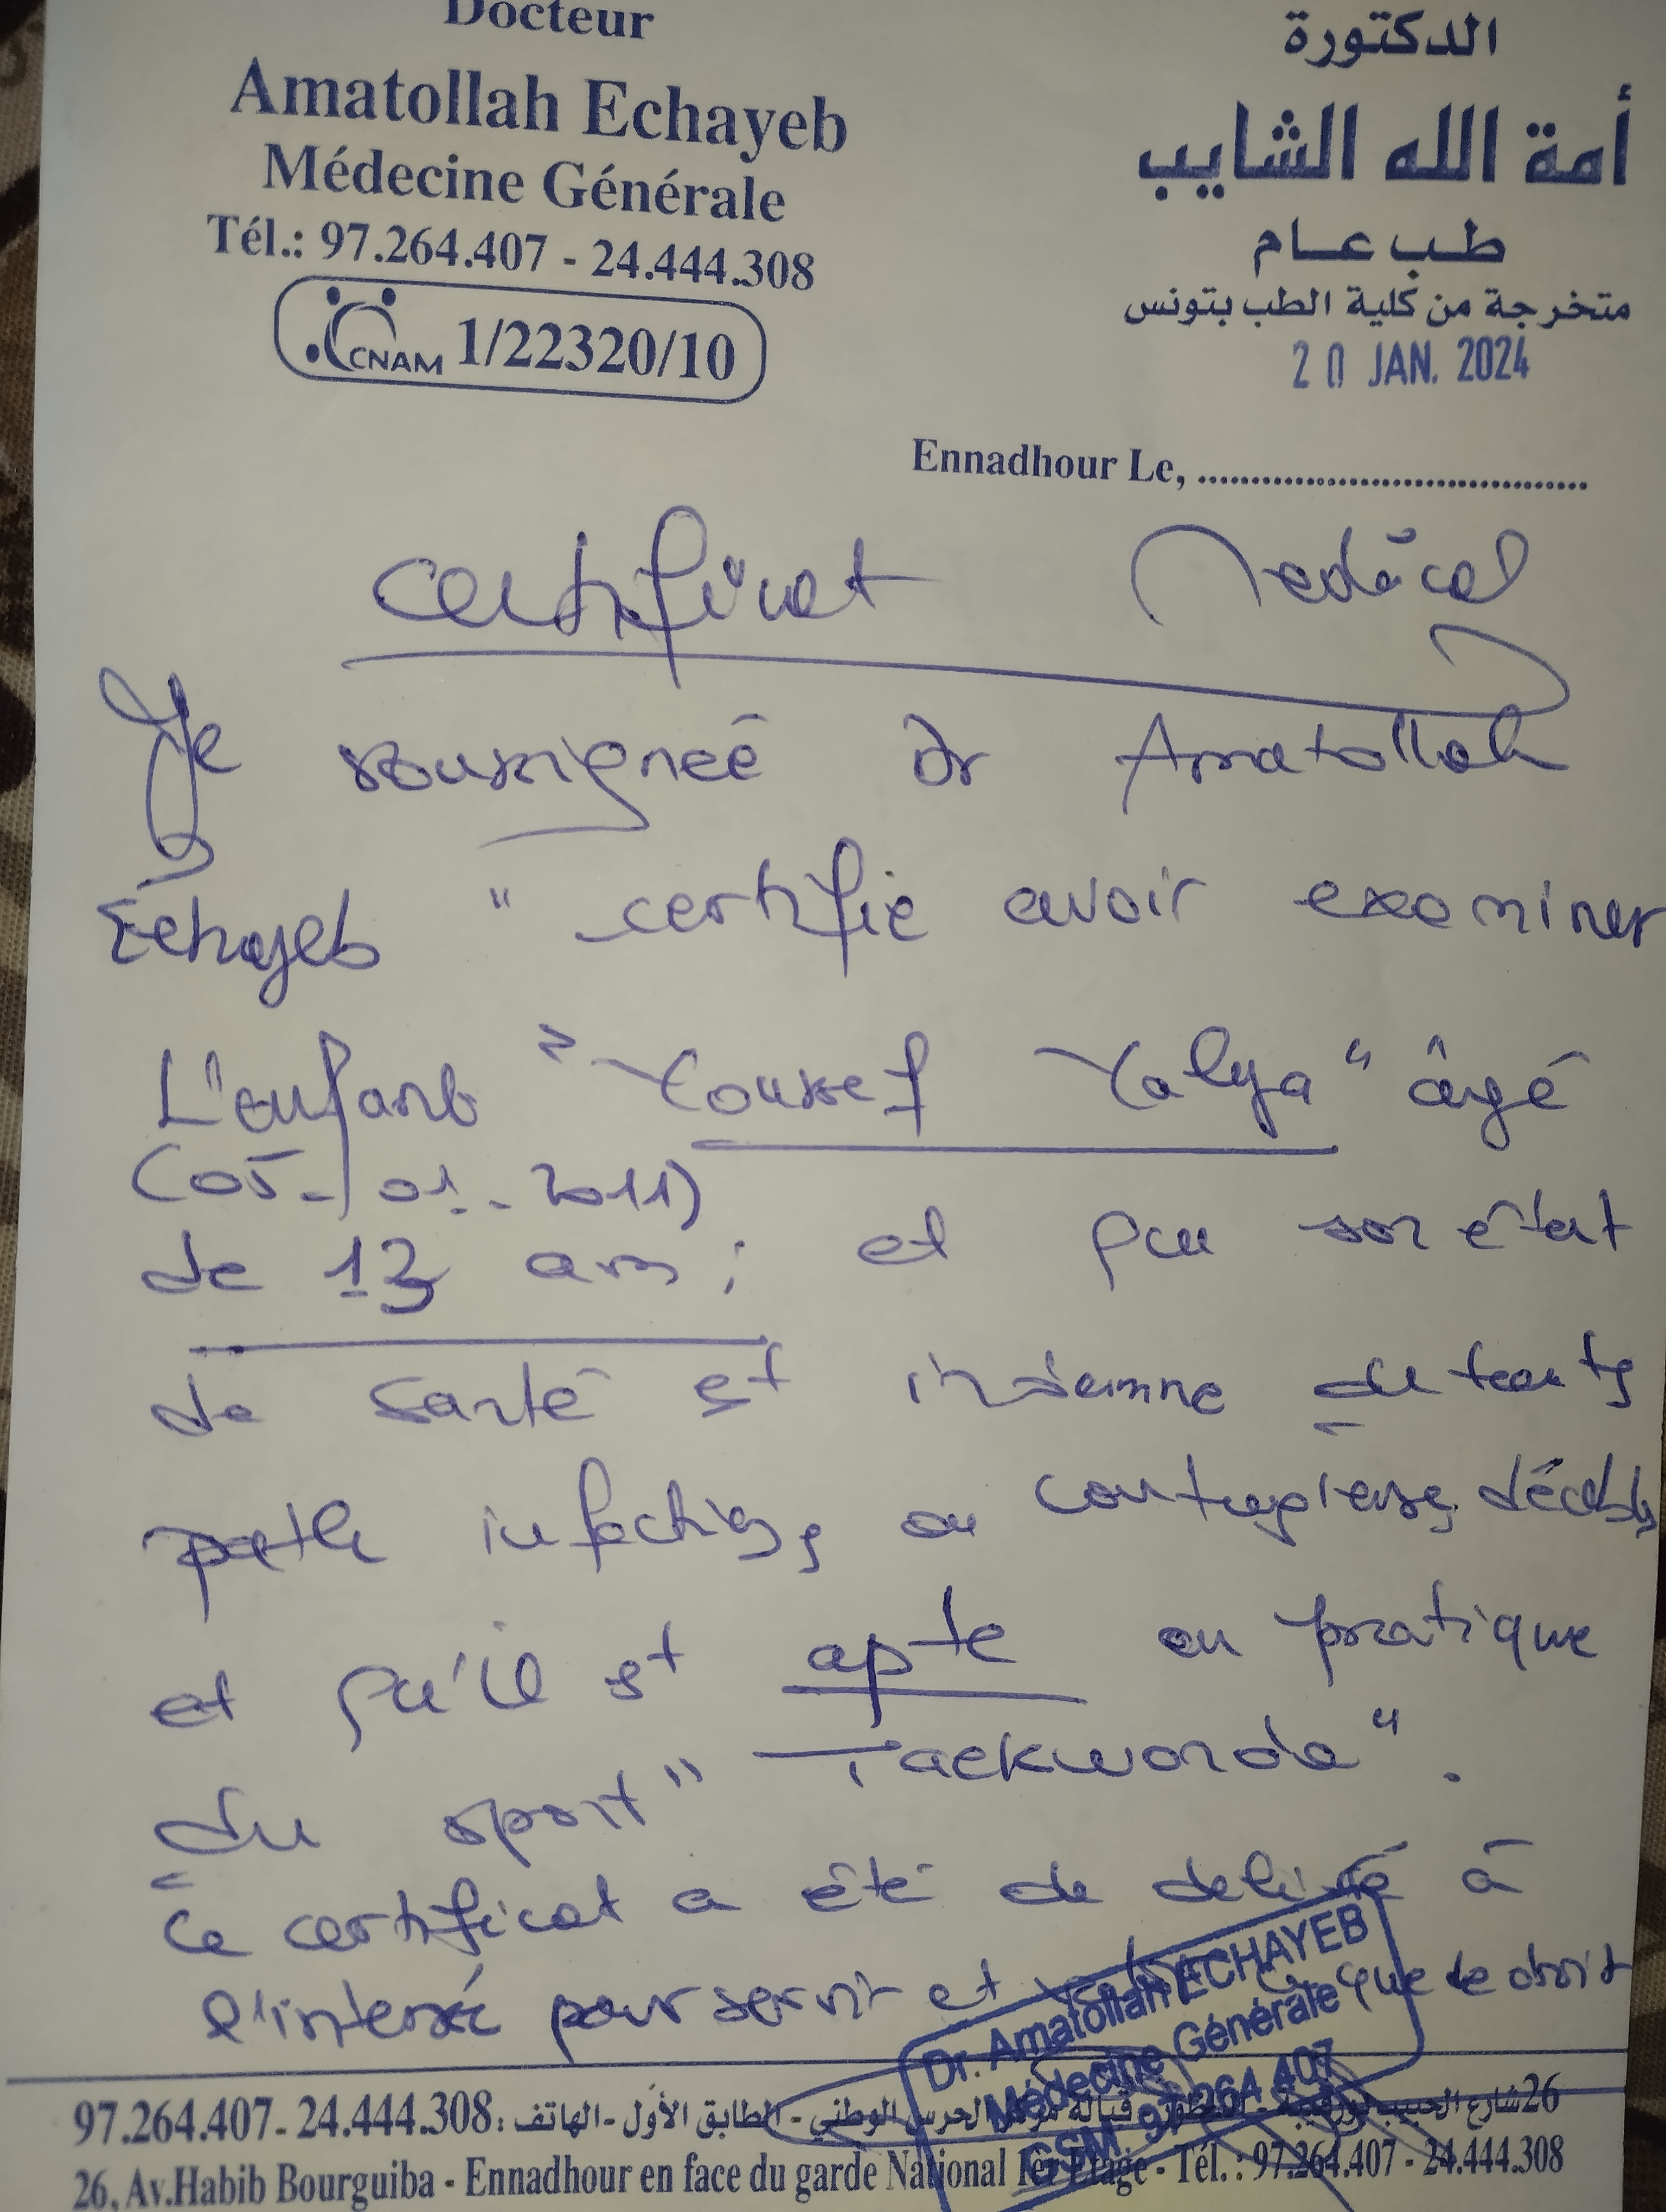 Docteur
Amatollah Echayeb
Médecine Générale
Tél.: 97.264.407 - 24.444.308
CNAM 1/22320/10
الدكتورة
أمة الله الشايب
طب عام
متخرجة من كلية الطب بتونس
20 JAN. 2024
Ennadhour Le, ....................................
Certificat Medical
Je soussigneé Dr Amatollah
Echayeb " certifie avoir examiner
L'enfant " Youssef Yahya " âgé
(05-01-2011)
de 13 ans ; et que son état
de santé est indemne de toute
path infectieuse ou contagieuse
et qu'il est apte au pratique
du sport " Taekwondo ".
Ce certificat a été de delivré à
l'interssé pour servir et que de droit
Dr. Amatollah ECHAYEB
Médecine Générale
GSM 97 264 407
26 شارع الحبيب بورقيبة - قبالة الحرس الوطني - الطابق الأول - الهاتف : 97.264.407 - 24.444.308
26, Av.Habib Bourguiba - Ennadhour en face du garde National 1er Etage - Tél. : 97.264.407 - 24.444.308